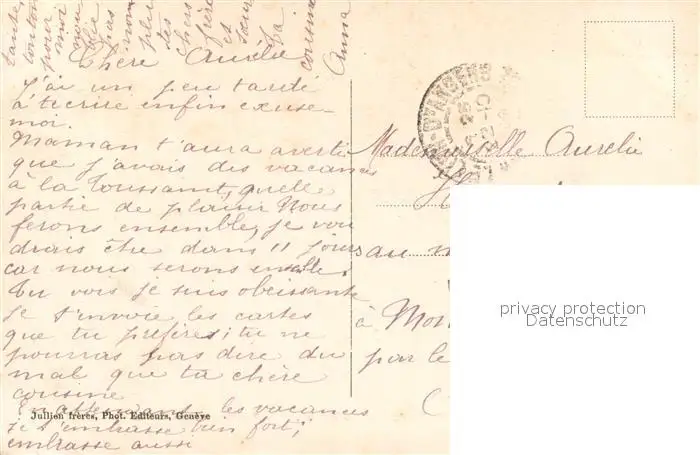 Chère Aurélie
J'ai un peu tardé
à t'ecrire enfin excuse-
moi.
Maman t'aura averti
que j'avais des vacances
à la Toussaint, quelle
partie de plaisir nous
ferons ensemble, je vou
drais être dans 11 jours
car nous serons ensemble.
Tu vois je suis obéissante
je t'envoie les cartes
que tu préfères; tu ne
pourras pas dire du
mal que ta chère
cousine
en attendant les vacances
je t'embrasse bien fort;
embrasse aussi
tante,
tonton
pour
moi
pas
tes
chers
frère
et
sœur
Ta
cousine
Anna
Mademoiselle Aurélie
au
à Mon
par le
Jullien frères, Phot. Editeurs, Genève
privacy protection
Datenschutz